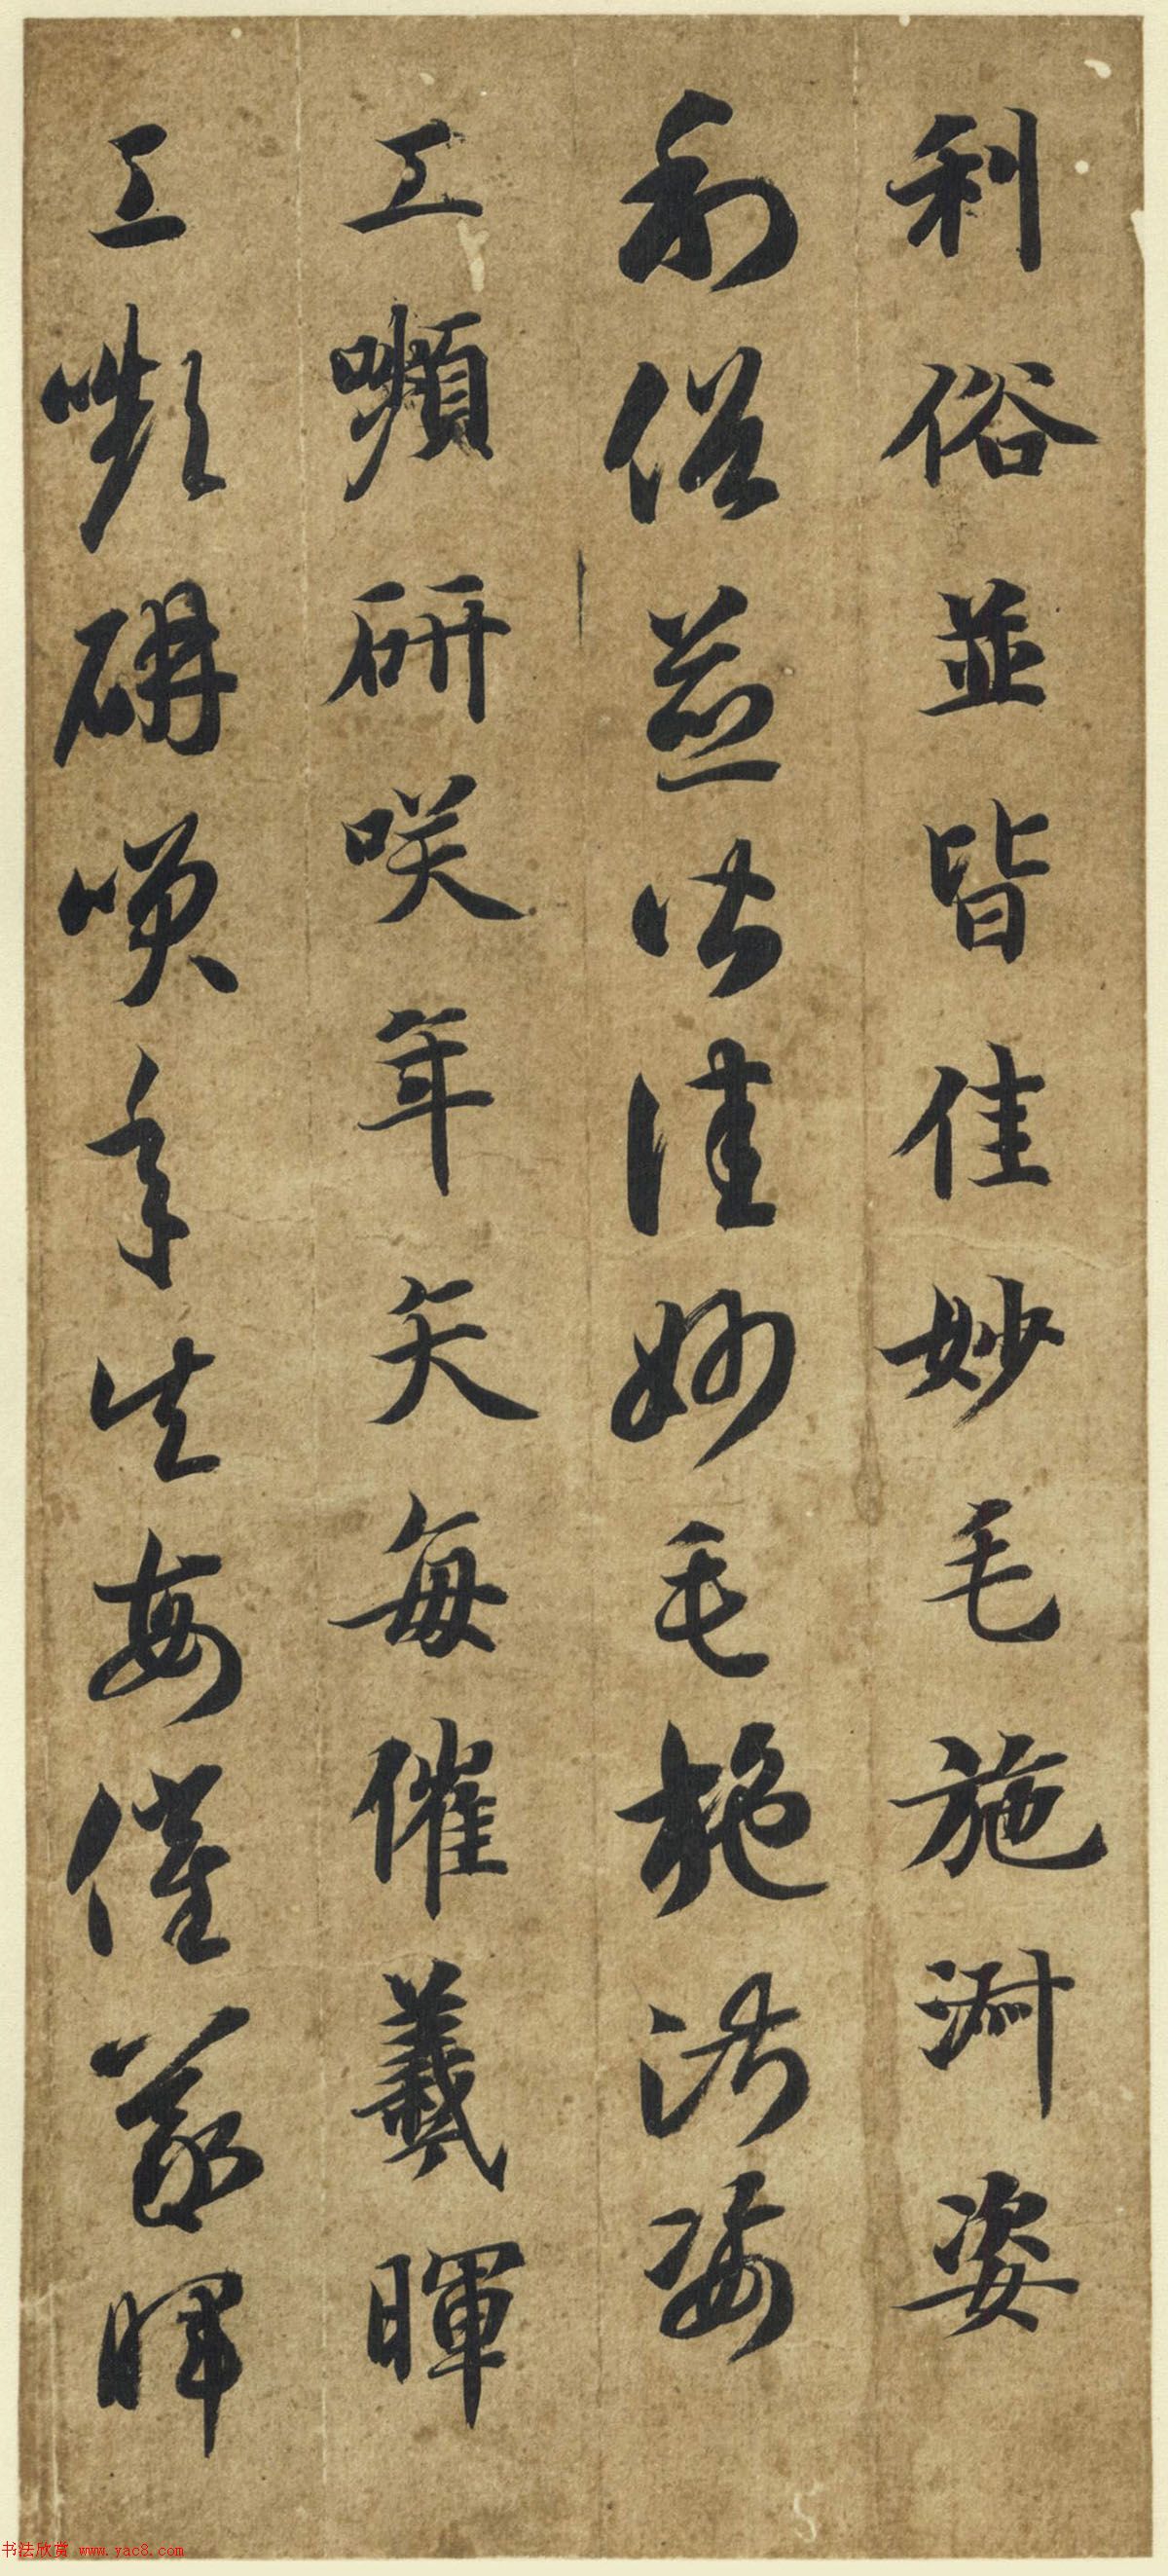 利俗並皆佳妙毛施淑姿
利俗並皆佳妙毛施淑姿
工嚬研咲年矢每催羲暉
工嚬研咲年矢每催羲暉
书法欣赏 www.yac8.com